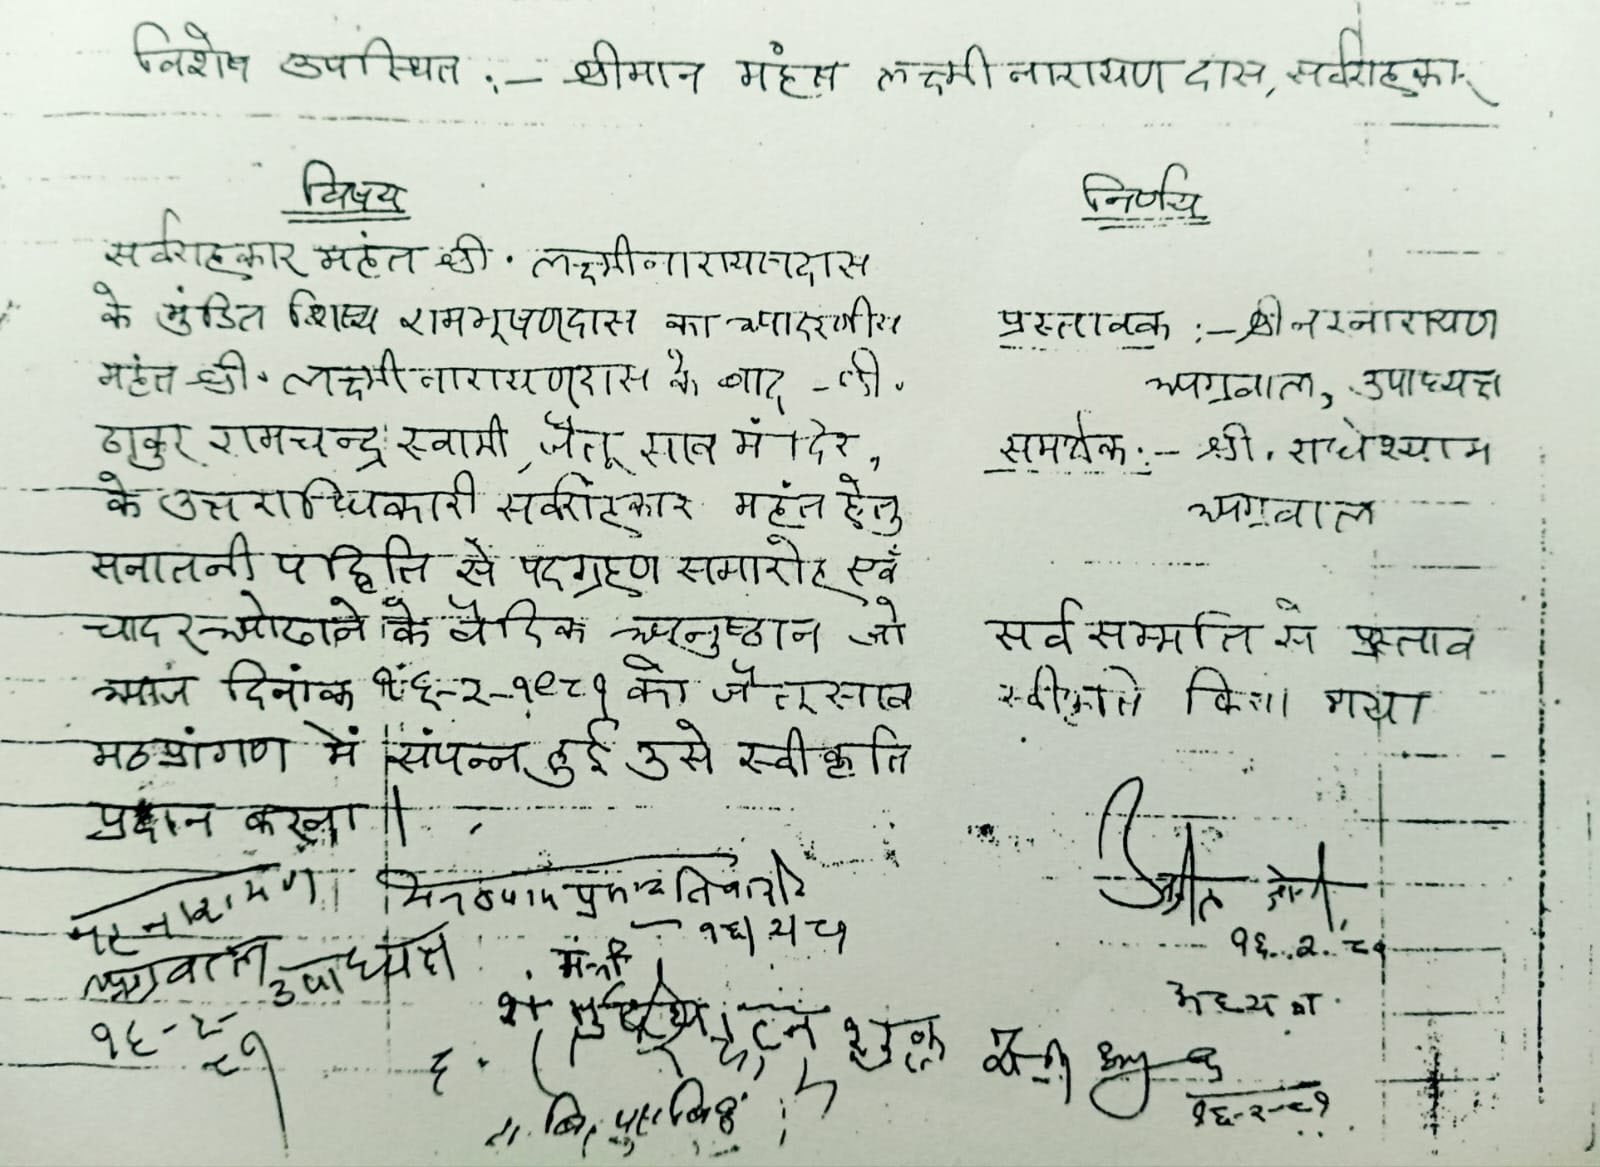 विशेष उपस्थित :- श्रीमान महंत लक्ष्मीनारायण दास, सर्वराहकार
विषय
सर्वराहकार महंत श्री. लक्ष्मीनारायणदास
के मुंडित शिष्य रामभूषणदास का आदरणीय
महंत श्री. लक्ष्मीनारायणदास के बाद श्री.
ठाकुर रामचन्द्र स्वामी, जैतू साव मंदिर,
के उत्तराधिकारी सर्वराहकार महंत हेतु
सनातनी पद्धिति से पदग्रहण समारोह एवं
चादर ओढाने के वैदिक अनुष्ठान जो
आज दिनांक १६-२-१९८१ को जैतूसाव
मठप्रांगण में संपन्न हुई उसे स्वीकृति
प्रदान करना।
निर्णय
प्रस्तावक :- श्री नरनारायण
अग्रवाल, उपाध्यक्ष
समर्थक :- श्री. राधेश्याम
अग्रवाल
सर्व सम्मति से प्रस्ताव
स्वीकृत किया गया
नरनारायण
अग्रवाल उपाध्यक्ष
१६-२-
८१
तिवारी
१६/२/८१
मंत्री
१६.२.८१
अध्यक्ष
शुक्ल
१६-२-८१